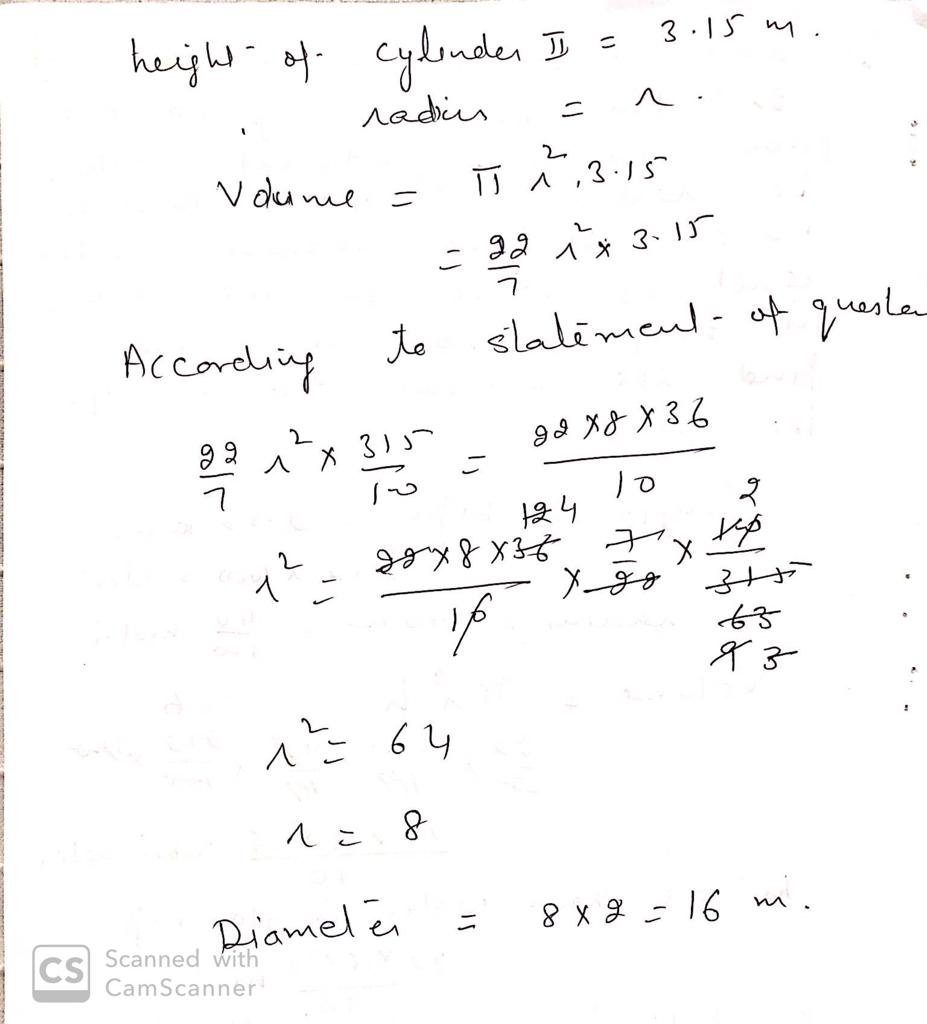 height of cylinder II = 3.15 m.
radius = r.
Volume = π r², 3.15
= 22/7 r² × 3.15
According to statement of
22/7 r² × 315/100 = 22 × 8 × 36/10
r² = 22 × 8 × 36/10 × 7/22 × 100/315
12 4
2
63
9 3
r² = 64
r = 8
Diameter = 8 × 2 = 16 m.
CS Scanned with
CamScanner